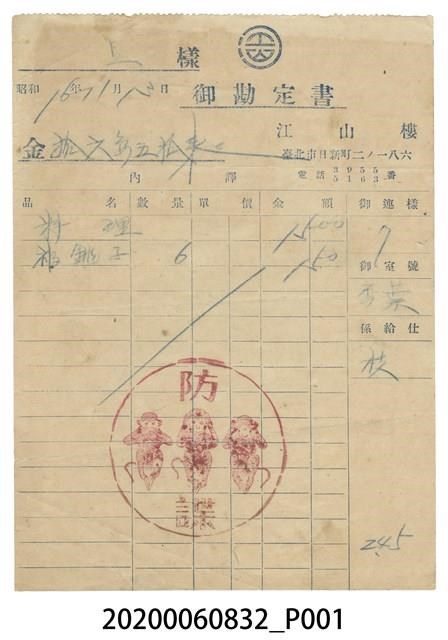 上 樣
昭和 16年 11月 13日
御勘定書
江山樓
臺北市日新町二ノ一八六
電話 3955 5163 番
金 拾六圓五拾錢
內譯
品名 數量 單價 金額 御連樣
料理 1500 7
6 150
御室號
係給仕
防諜
245
20200060832_P001